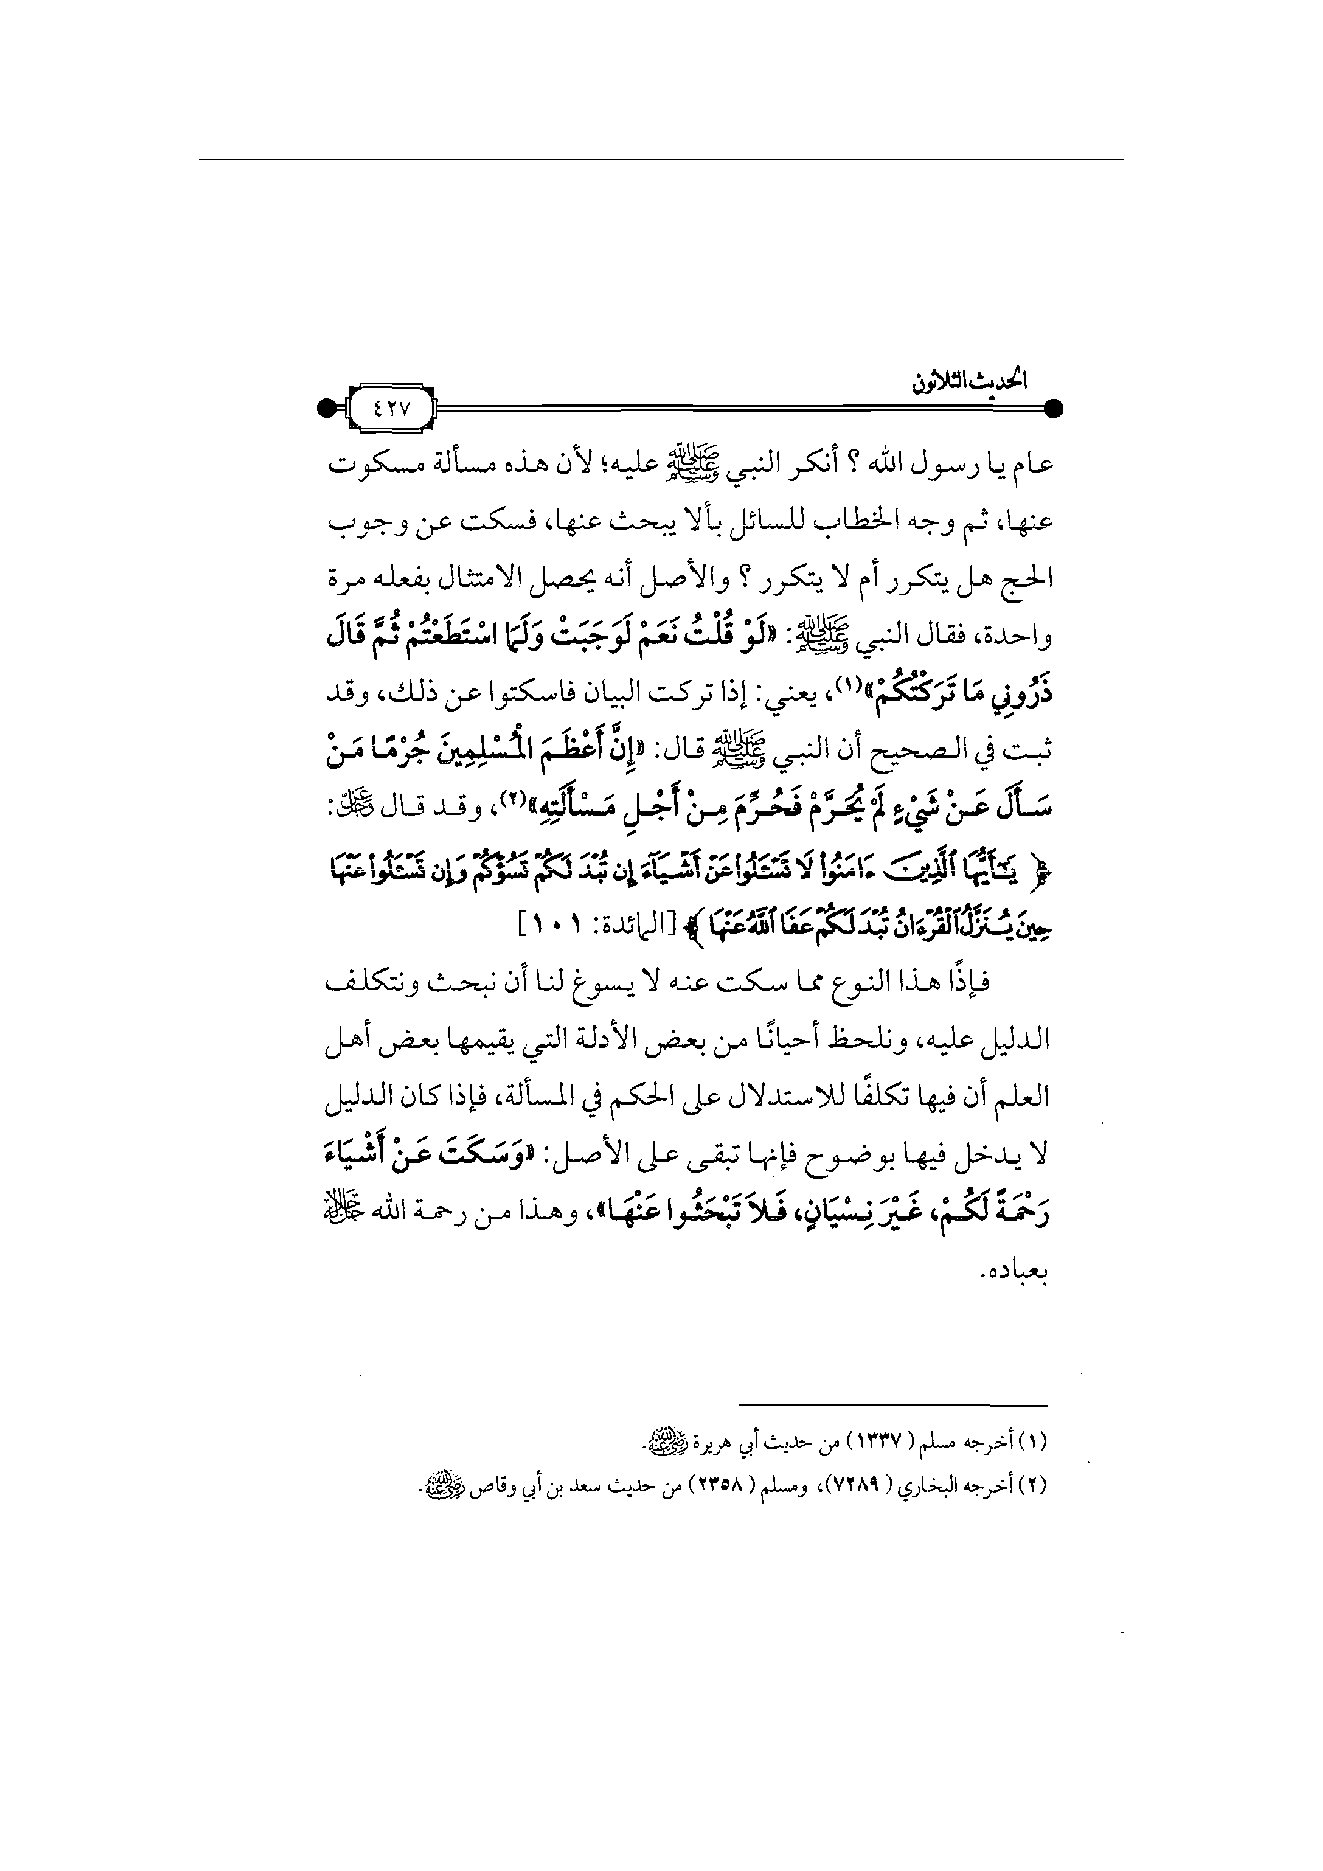 الحديث الثلاثون
٤٢٧
عام يا رسول الله ؟ أنكر النبي ﷺ عليه؛ لأن هذه مسألة مسكوت
عنها، ثم وجه الخطاب للسائل بألا يبحث عنها، فسكت عن وجوب
الحج هل يتكرر أم لا يتكرر ؟ والأصل أنه يحصل الامتثال بفعله مرة
واحدة، فقال النبي ﷺ: «لَوْ قُلْتُ نَعَمْ لَوَجَبَتْ وَلَمَا اسْتَطَعْتُمْ ثُمَّ قَالَ
ذَرُونِي مَا تَرَكْتُكُمْ»(١)، يعني: إذا تركت البيان فاسكتوا عن ذلك، وقد
ثبت في الصحيح أن النبي ﷺ قال: «إِنَّ أَعْظَمَ الْمُسْلِمِينَ جُرْمًا مَنْ
سَأَلَ عَنْ شَيْءٍ لَمْ يُحَرَّمْ فَحُرِّمَ مِنْ أَجْلِ مَسْأَلَتِهِ»(٢)، وقد قال ﷻ:
﴿ يَـٰٓأَيُّهَا ٱلَّذِينَ ءَامَنُوا۟ لَا تَسْـَٔلُوا۟ عَنْ أَشْيَآءَ إِن تُبْدَ لَكُمْ تَسُؤْكُمْ وَإِن تَسْـَٔلُوا۟ عَنْهَا
حِينَ يُنَزَّلُ ٱلْقُرْءَانُ تُبْدَ لَكُمْ عَفَا ٱللَّهُ عَنْهَا ﴾ [المائدة: ١٠١]
فإذًا هذا النوع مما سكت عنه لا يسوغ لنا أن نبحث ونتكلف
الدليل عليه، ونلحظ أحيانًا من بعض الأدلة التي يقيمها بعض أهل
العلم أن فيها تكلفًا للاستدلال على الحكم في المسألة، فإذا كان الدليل
لا يدخل فيها بوضوح فإنها تبقى على الأصل: «وَسَكَتَ عَنْ أَشْيَاءَ
رَحْمَةً لَكُمْ، غَيْرَ نِسْيَانٍ، فَلاَ تَبْحَثُوا عَنْهَا»، وهذا من رحمة الله ﷻ
بعباده.
(١) أخرجه مسلم (١٣٣٧) من حديث أبي هريرة رضي الله عنه.
(٢) أخرجه البخاري (٧٢٨٩)، ومسلم (٢٣٥٨) من حديث سعد بن أبي وقاص رضي الله عنه.